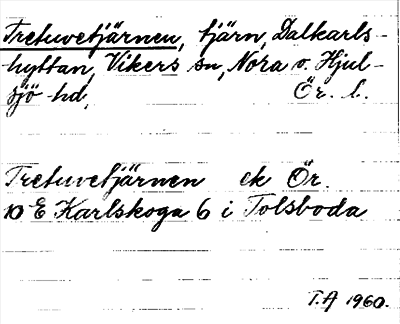 Tretuvetjärnen, tjärn, Dalkarls-
hyttan, Vikers sn, Nora o. Hjul-
sjö hd, Ör. l.
Tretuvetjärnen ek Ör.
10 E Karlskoga 6 i Tolsboda
T.A 1960.